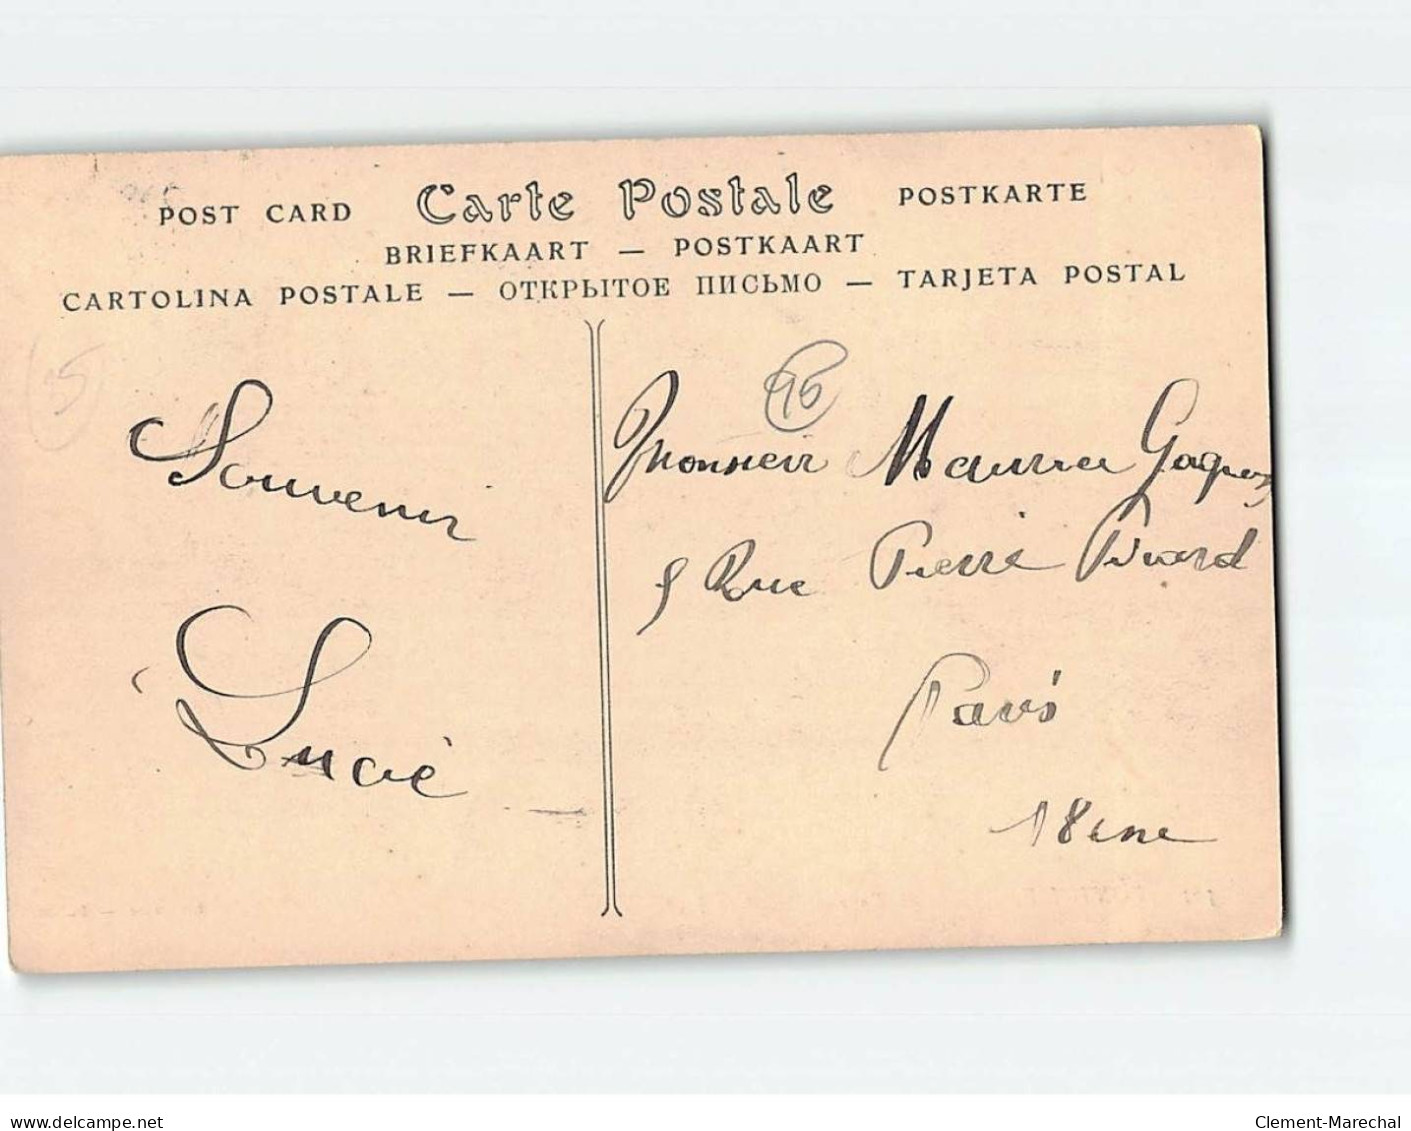 POST CARD Carte Postale POSTKARTE
BRIEFKAART — POSTKAART
CARTOLINA POSTALE — ОТКРЫТОЕ ПИСЬМО — TARJETA POSTAL
95
Souvenir
Lucie
Monsieur Maurice
5 Rue Pierre Picard
Paris
18eme
delcampe.net
Clement-Marechal